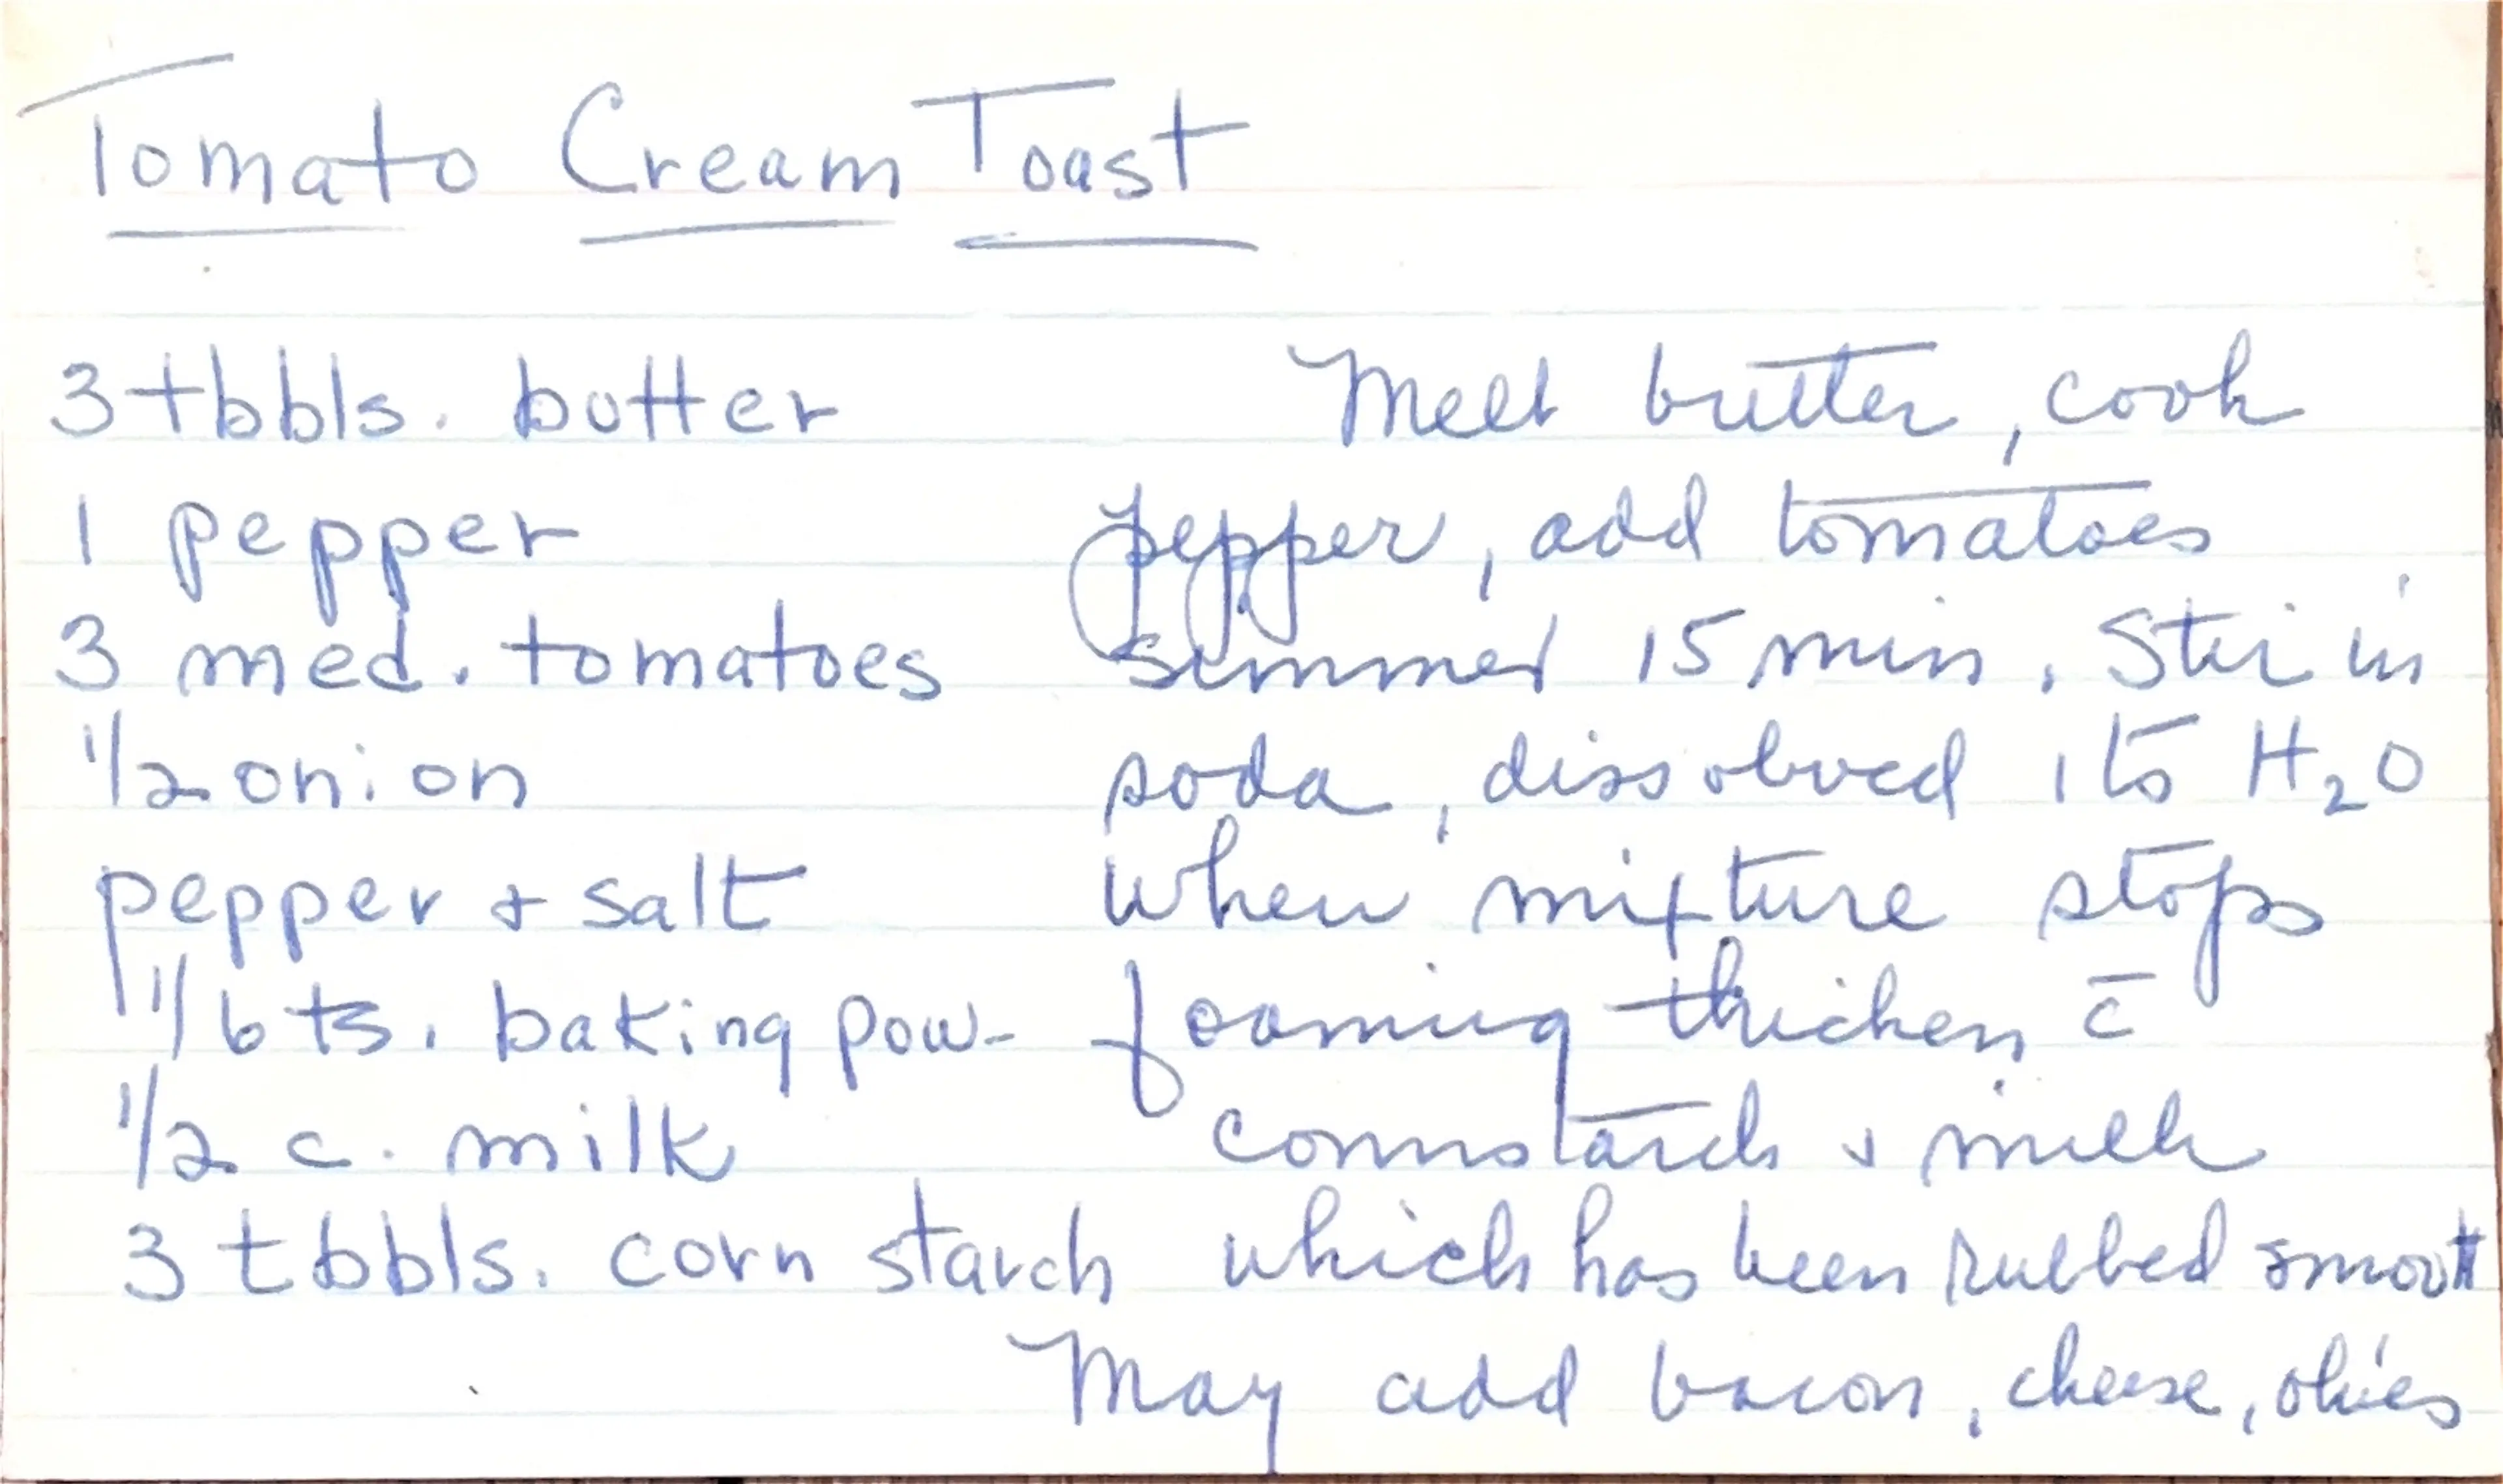 Tomato Cream Toast
3 tbbls. butter
1 pepper
3 med. tomatoes
1/2 onion
pepper & salt
1/6 ts. baking pow-
1/2 c. milk
3 tbbls. corn starch
Melt butter, cook
pepper, add tomatoes
simmer 15 min. Stir in
soda, dissolved 1 to H₂O
When mixture stops
foaming thicken c̄
cornstarch & milk
which has been rubbed smooth
May add bacon, cheese, olives